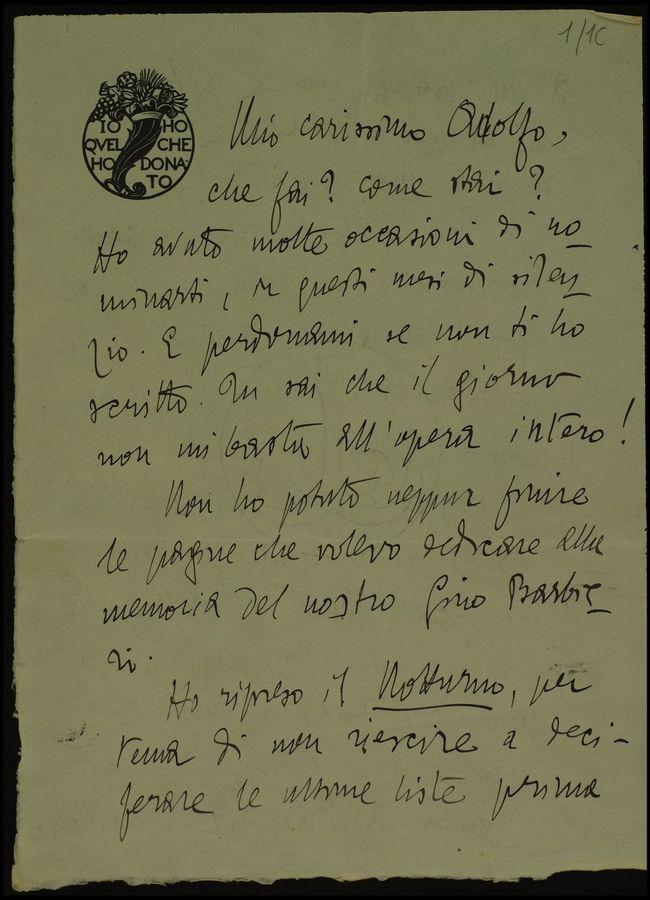 1/10
IO HO
QVEL CHE
HO DONA
TO
Mio carissimo Adolfo,
che fai? come stai?
Ho avuto molte occasioni di no
minarti, in questi mesi di silen
zio. E perdonami se non ti ho
scritto. Tu sai che il giorno
non mi basta all'opera intero!
Non ho potuto neppur finire
le pagine che volevo dedicare alla
memoria del nostro Gino Barbie
ri.
Ho ripreso il Notturno, per
tema di non riescire a deci-
ferare le ultime liste prima